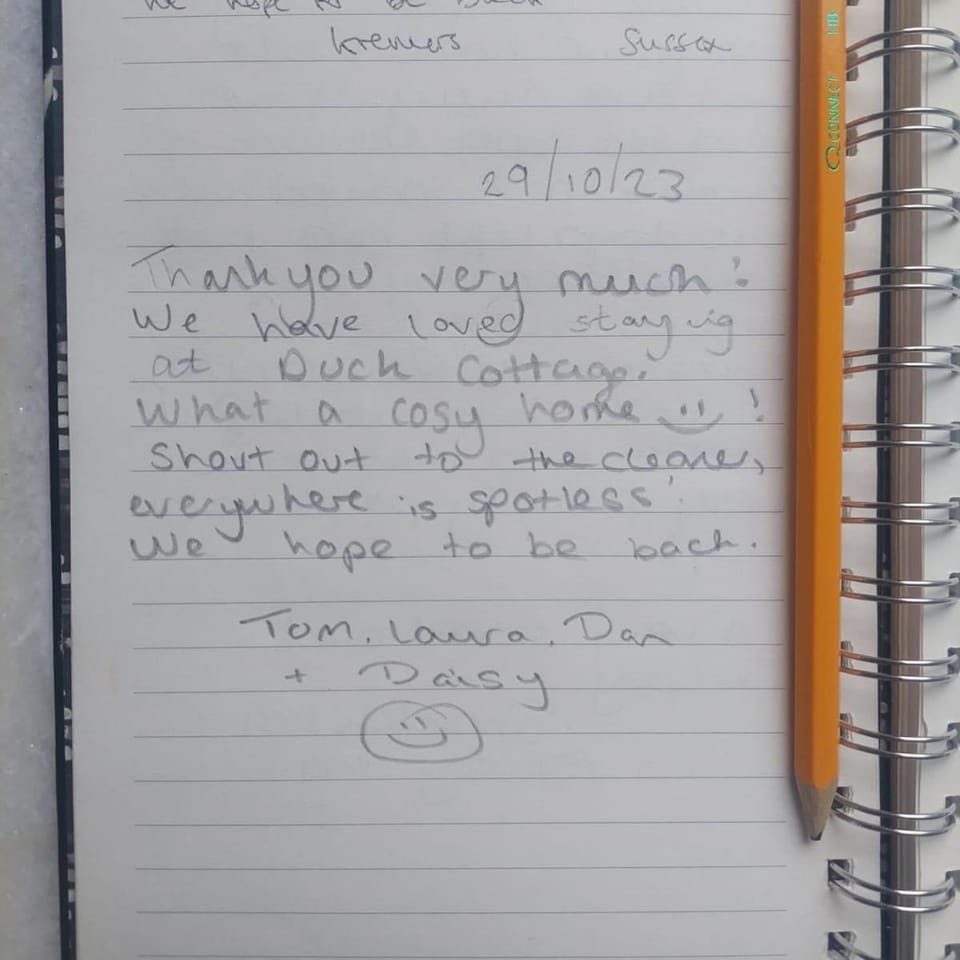 we hope to be back
Kremers Sussex
29/10/23
Thank you very much!
We have loved staying
at Duck Cottage.
What a cosy home !
Shout out to the cleaner,
everywhere is spotless!
We hope to be back.
Tom, Laura, Dan
+ Daisy
Q CONNECT HB